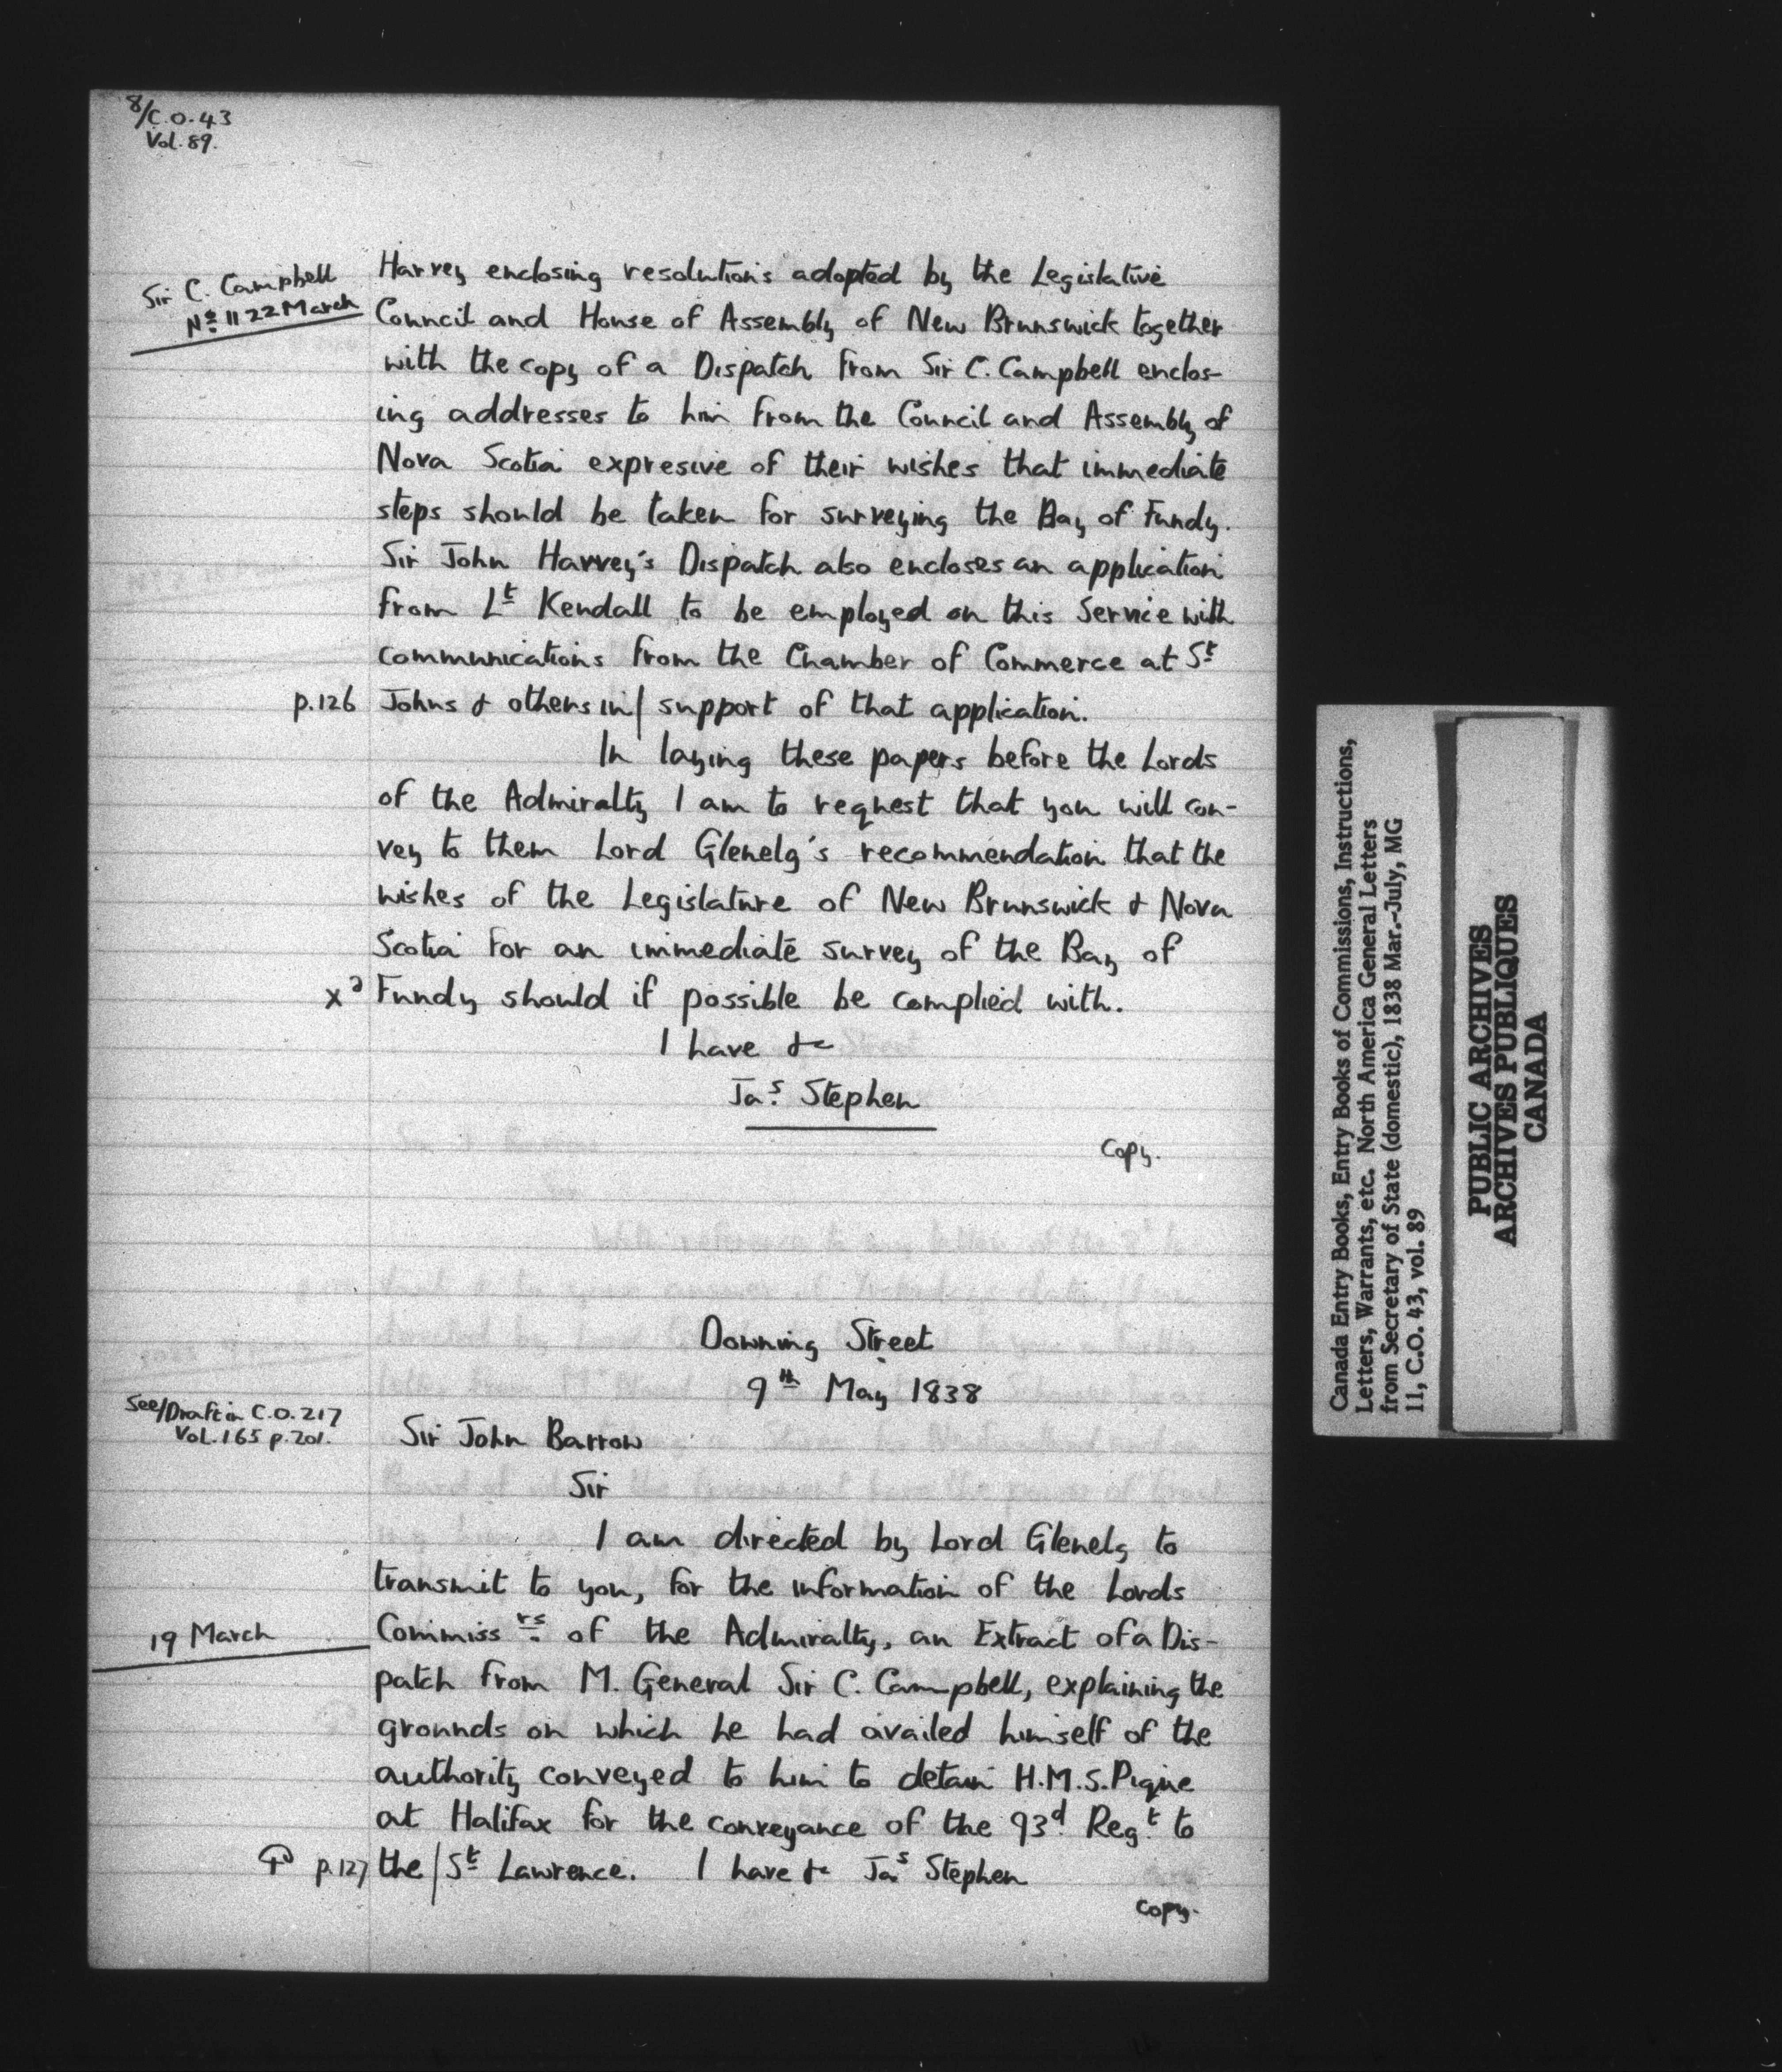 8/C.O.43
Vol. 89.
Sir C. Campbell
Nº 11 22 March
Harvey enclosing resolutions adopted by the Legislative
Council and House of Assembly of New Brunswick together
with the copy of a Dispatch from Sir C. Campbell enclos-
ing addresses to him from the Council and Assembly of
Nova Scotia expresive of their wishes that immediate
steps should be taken for surveying the Bay of Fundy.
Sir John Harvey's Dispatch also encloses an application
from Lt Kendall to be employed on this Service with
communications from the Chamber of Commerce at St
p.126 Johns & others in/ support of that application.
In laying these papers before the Lords
of the Admiralty I am to request that you will con-
vey to them Lord Glenelg's recommendation that the
wishes of the Legislature of New Brunswick & Nova
Scotia for an immediate survey of the Bay of
Fundy should if possible be complied with.
I have &c
Jas. Stephen
Copy.
Downing Street
9th May 1838
See/Draft in C.O.217
Vol. 165 p.201.
Sir John Barrow
Sir
I am directed by Lord Glenelg to
transmit to you, for the information of the Lords
19 March
Commissrs. of the Admiralty, an Extract of a Dis-
patch from M. General Sir C. Campbell, explaining the
grounds on which he had availed himself of the
authority conveyed to him to detain H.M.S. Pique
at Halifax for the conveyance of the 93d. Regt. to
p.127 the / St Lawrence. I have &c Jas Stephen
Copy.
Canada Entry Books, Entry Books of Commissions, Instructions,
Letters, Warrants, etc. North America General Letters
from Secretary of State (domestic), 1838 Mar.-July, MG
11, C.O. 43, vol. 89
PUBLIC ARCHIVES
ARCHIVES PUBLIQUES
CANADA